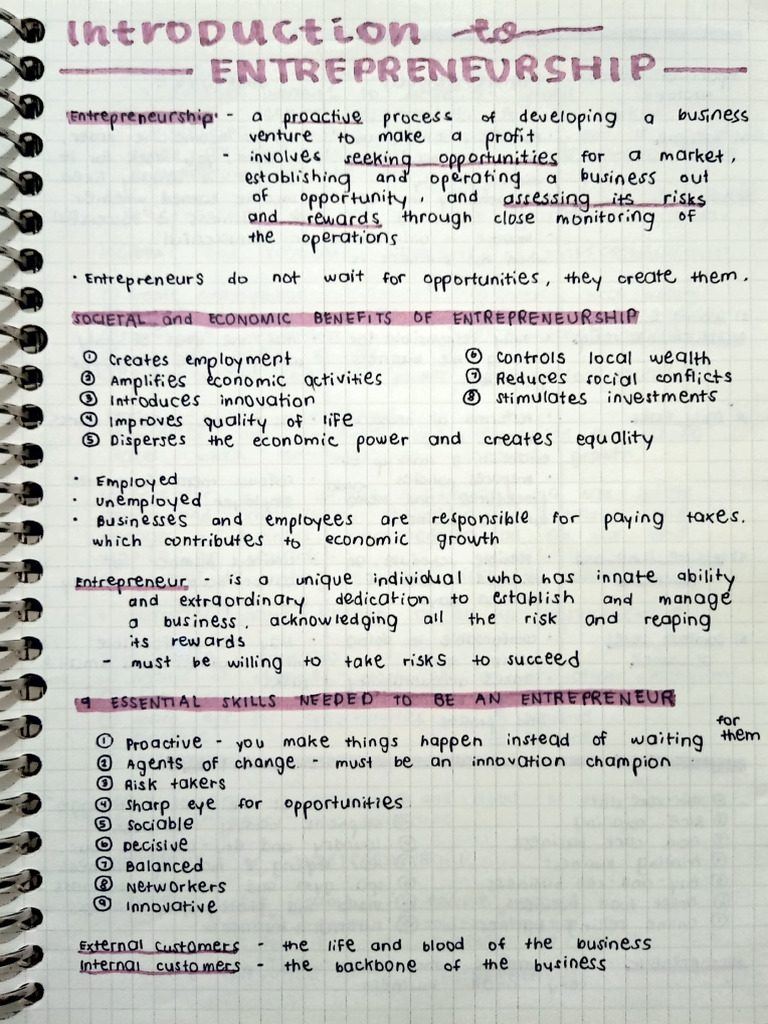 Introduction to
ENTREPRENEURSHIP
Entrepreneurship - a proactive process of developing a business
venture to make a profit
- involves seeking opportunities for a market,
establishing and operating a business out
of opportunity, and assessing its risks
and rewards through close monitoring of
the operations
• Entrepreneurs do not wait for opportunities, they create them.
SOCIETAL and ECONOMIC BENEFITS OF ENTREPRENEURSHIP
① Creates employment
② Amplifies economic activities
③ Introduces innovation
④ Improves quality of life
⑤ Disperses the economic power and creates equality
⑥ Controls local wealth
⑦ Reduces social conflicts
⑧ Stimulates investments
• Employed
• Unemployed
• Businesses and employees are responsible for paying taxes.
which contributes to economic growth
Entrepreneur - is a unique individual who has innate ability
and extraordinary dedication to establish and manage
a business, acknowledging all the risk and reaping
its rewards
- must be willing to take risks to succeed
9 ESSENTIAL SKILLS NEEDED TO BE AN ENTREPRENEUR
① Proactive - you make things happen instead of waiting for them
② Agents of change - must be an innovation champion
③ Risk takers
④ Sharp eye for opportunities
⑤ Sociable
⑥ Decisive
⑦ Balanced
⑧ Networkers
⑨ Innovative
External customers - the life and blood of the business
Internal customers - the backbone of the business